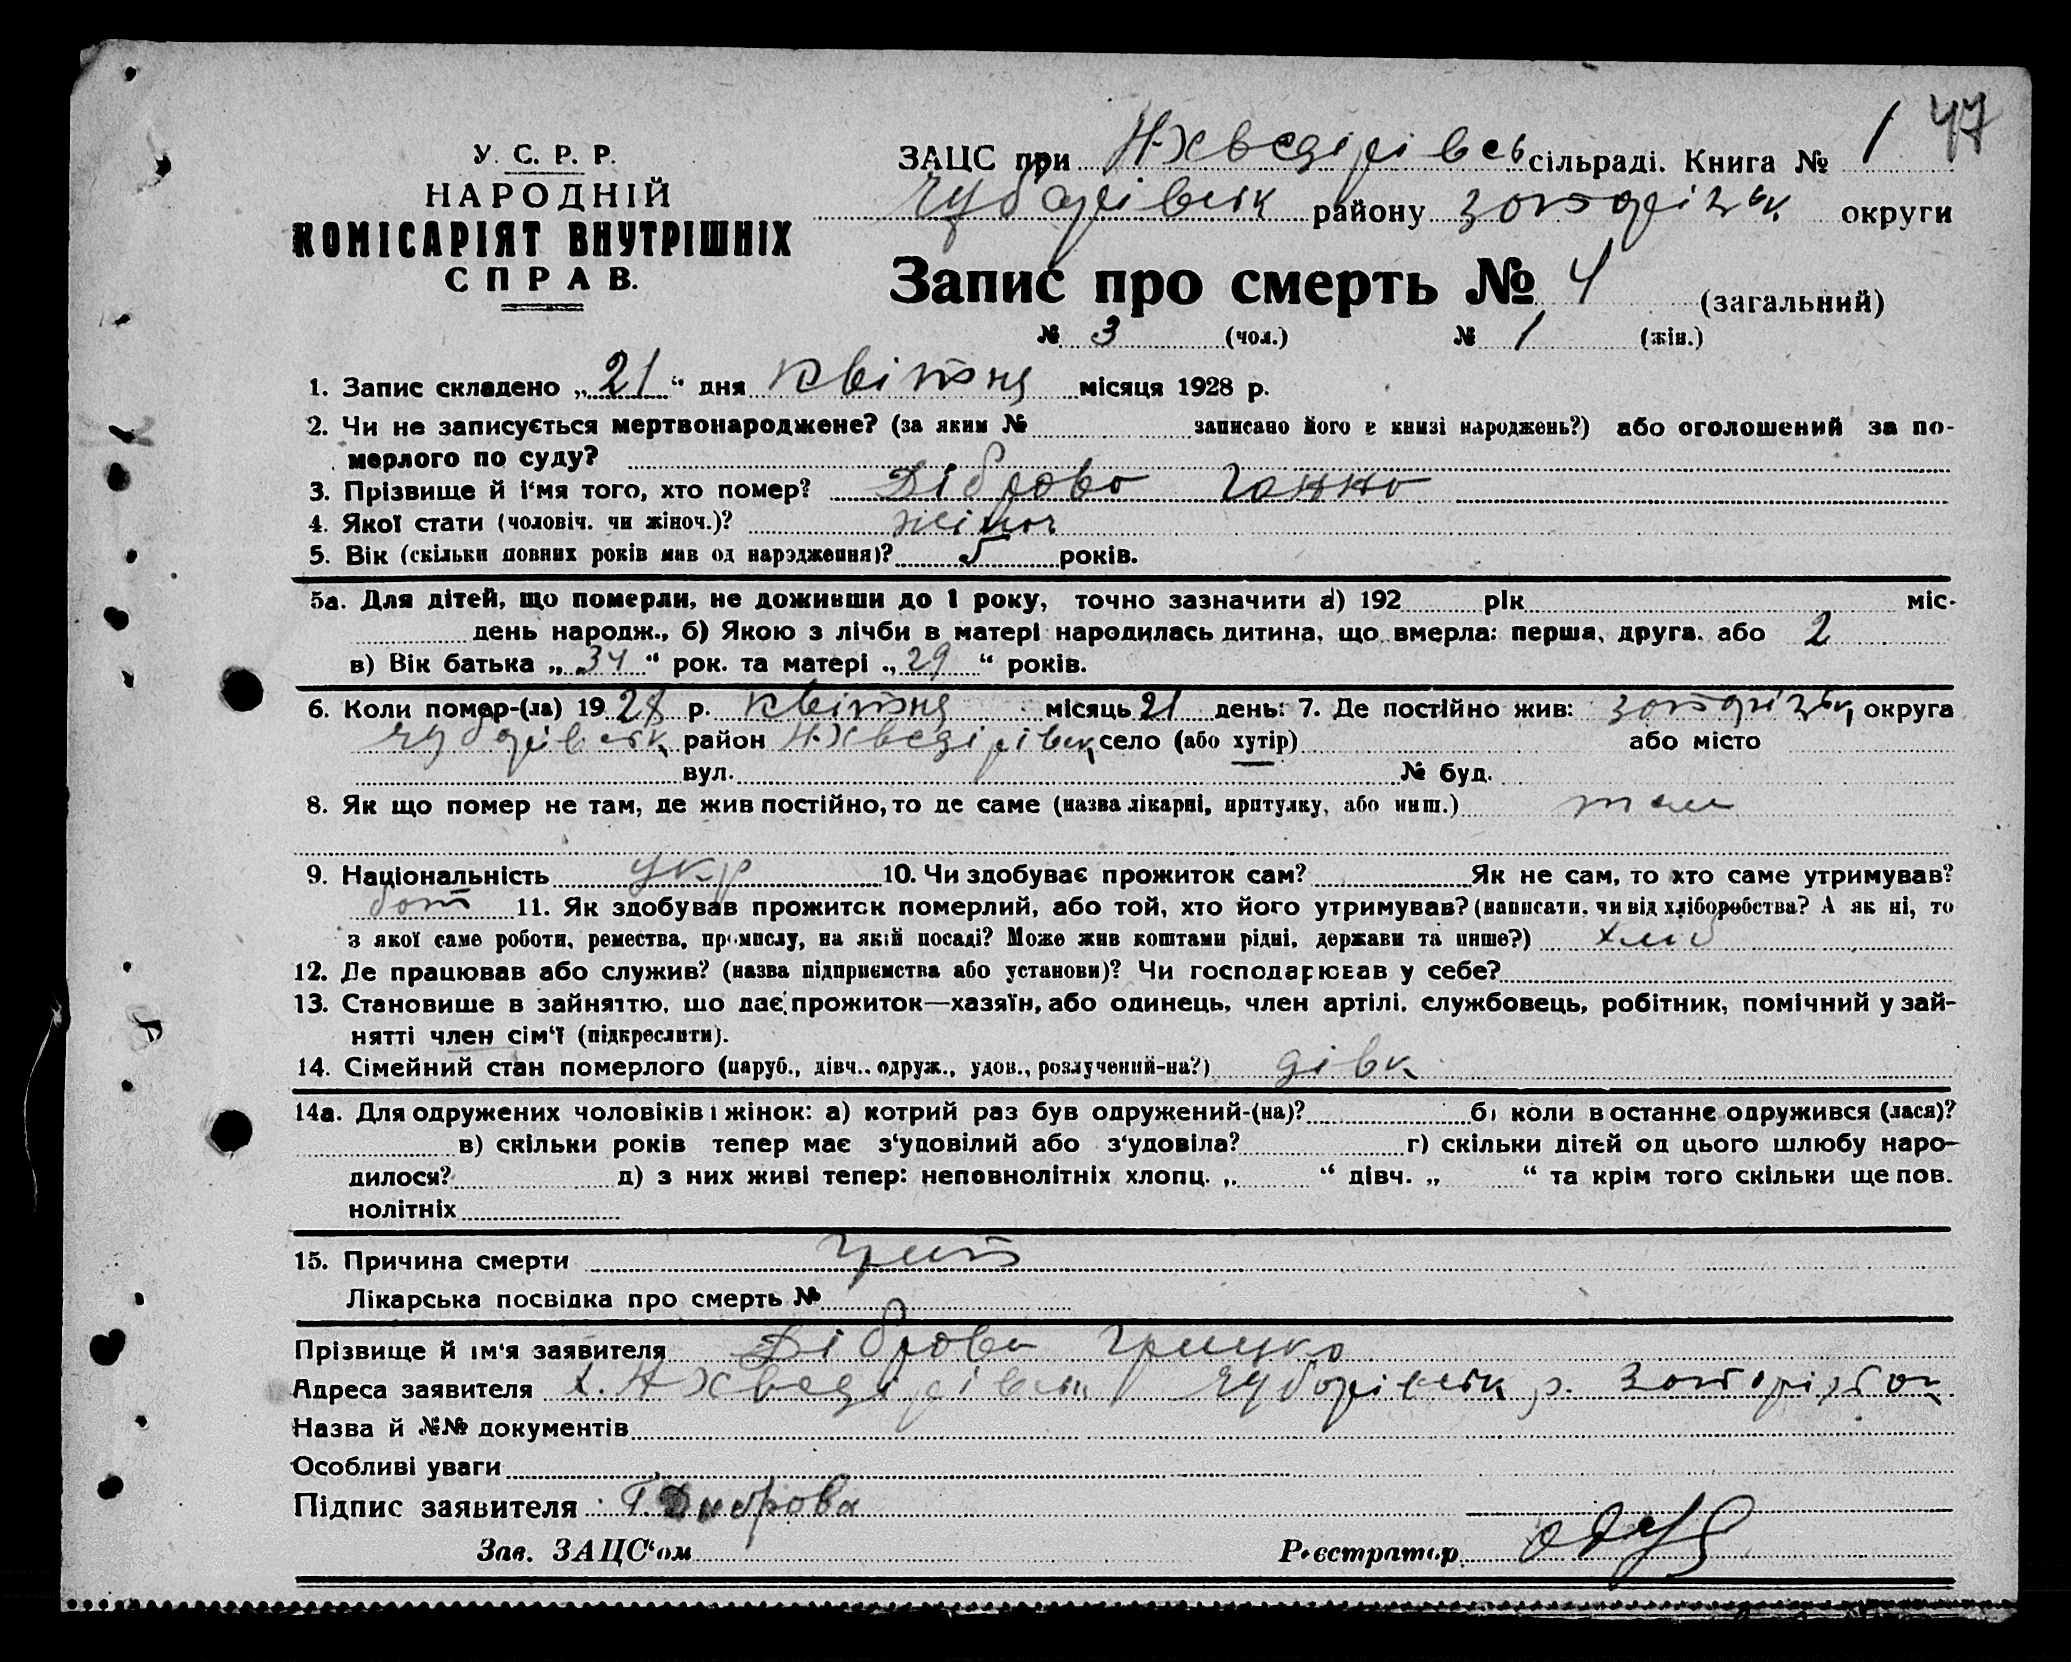 47
У. С. Р. Р.
НАРОДНІЙ
КОМІСАРІЯТ ВНУТРІШНІХ
СПРАВ.
ЗАЦС при Н-Хведірівсь сільраді. Книга № 1
Чубарівськ району Запорізьк округи
Запис про смерть № 4 (загальний)
№ 3 (чол.) № 1 (жін.)
1. Запис складено „21“ дня квітня місяця 1928 р.
2. Чи не записується мертвонароджене? (за яким № записано його в книзі народжень?) або оголошений за по-
мерлого по суду?
3. Прізвище й і'мя того, хто помер? Діброва Ганна
4. Якої стати (чоловіч. чи жіноч.)? жіноч
5. Вік (скільки повних років мав од народження)? 5 років.
5а. Для дітей, що померли, не доживши до 1 року, точно зазначити а) 192 рік міс-
день народж., б) Якою з лічби в матері народилась дитина, що вмерла: перша, друга. або 2
в) Вік батька „34“ рок. та матері „29“ років.
6. Коли помер-(ла) 1928 р. квітня місяць 21 день: 7. Де постійно жив: Запорізьк округа
Чубарівськ район Н-Хведірівськ село (або хутір) або місто
вул. № буд.
8. Як що помер не там, де жив постійно, то де саме (назва лікарні, притулку, або инш.) там
9. Національність укр 10. Чи здобуває прожиток сам? Як не сам, то хто саме утримував?
бат 11. Як здобував прожиток померлий, або той, хто його утримував? (написати, чи від хліборобства? А як ні, то
з якої саме роботи, ремества, промислу, на якій посаді? Може жив коштами рідні, держави та инше?) хліб
12. Де працював або служив? (назва підприємства або установи)? Чи господарював у себе?
13. Становище в зайняттю, що дає прожиток—хазяїн, або одинець, член артілі, службовець, робітник, помічний у зай-
нятті член сім'ї (підкреслити).
14. Сімейний стан померлого (паруб., дівч., одруж., удов., розлучений-на?) дівк
14а. Для одружених чоловіків і жінок: а) котрий раз був одружений-(на)? б) коли в останнє одружився (лася)?
в) скільки років тепер має з'удовілий або з'удовіла? г) скільки дітей од цього шлюбу наро-
дилося? д) з них живі тепер: неповнолітніх хлопц. „ “ дівч. „ “ та крім того скільки ще пов.
нолітніх
15. Причина смерти грип
Лікарська посвідка про смерть №
Прізвище й ім'я заявителя Діброва Грицко
Адреса заявителя х. Н Хведірівськ Чубарівськ р. Запорізьк ок
Назва й №№ документів
Особливі уваги
Підпис заявителя Г. Диброва
Зав. ЗАЦС'ом Реєстратор